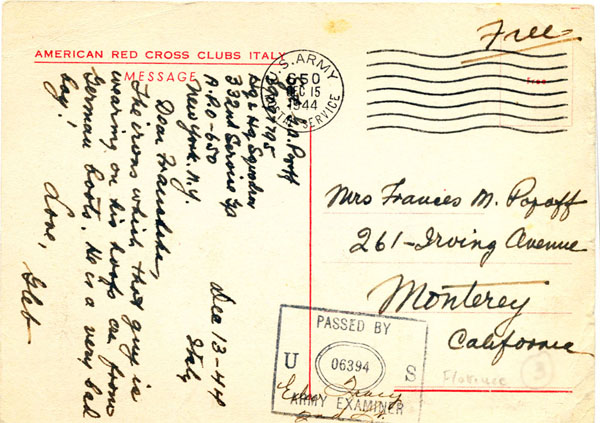 Free
AMERICAN RED CROSS CLUBS ITALY
MESSAGE
U.S. ARMY
650
DEC 15
1944
POSTAL SERVICE
Free
Popoff
Hq & Hq Squadron
332nd Service Gp
A.P.O-650
New York, N.Y.
Dec 13-44
Italy
Dear
The irons which that guy is
wearing on his hoofs are from
German boots. He is a very bad
boy!
Love,
Gleb
Mrs Frances M. Popoff
261-Irving Avenue
Monterey
California
PASSED BY
U 06394 S
ARMY EXAMINER
Florence
3